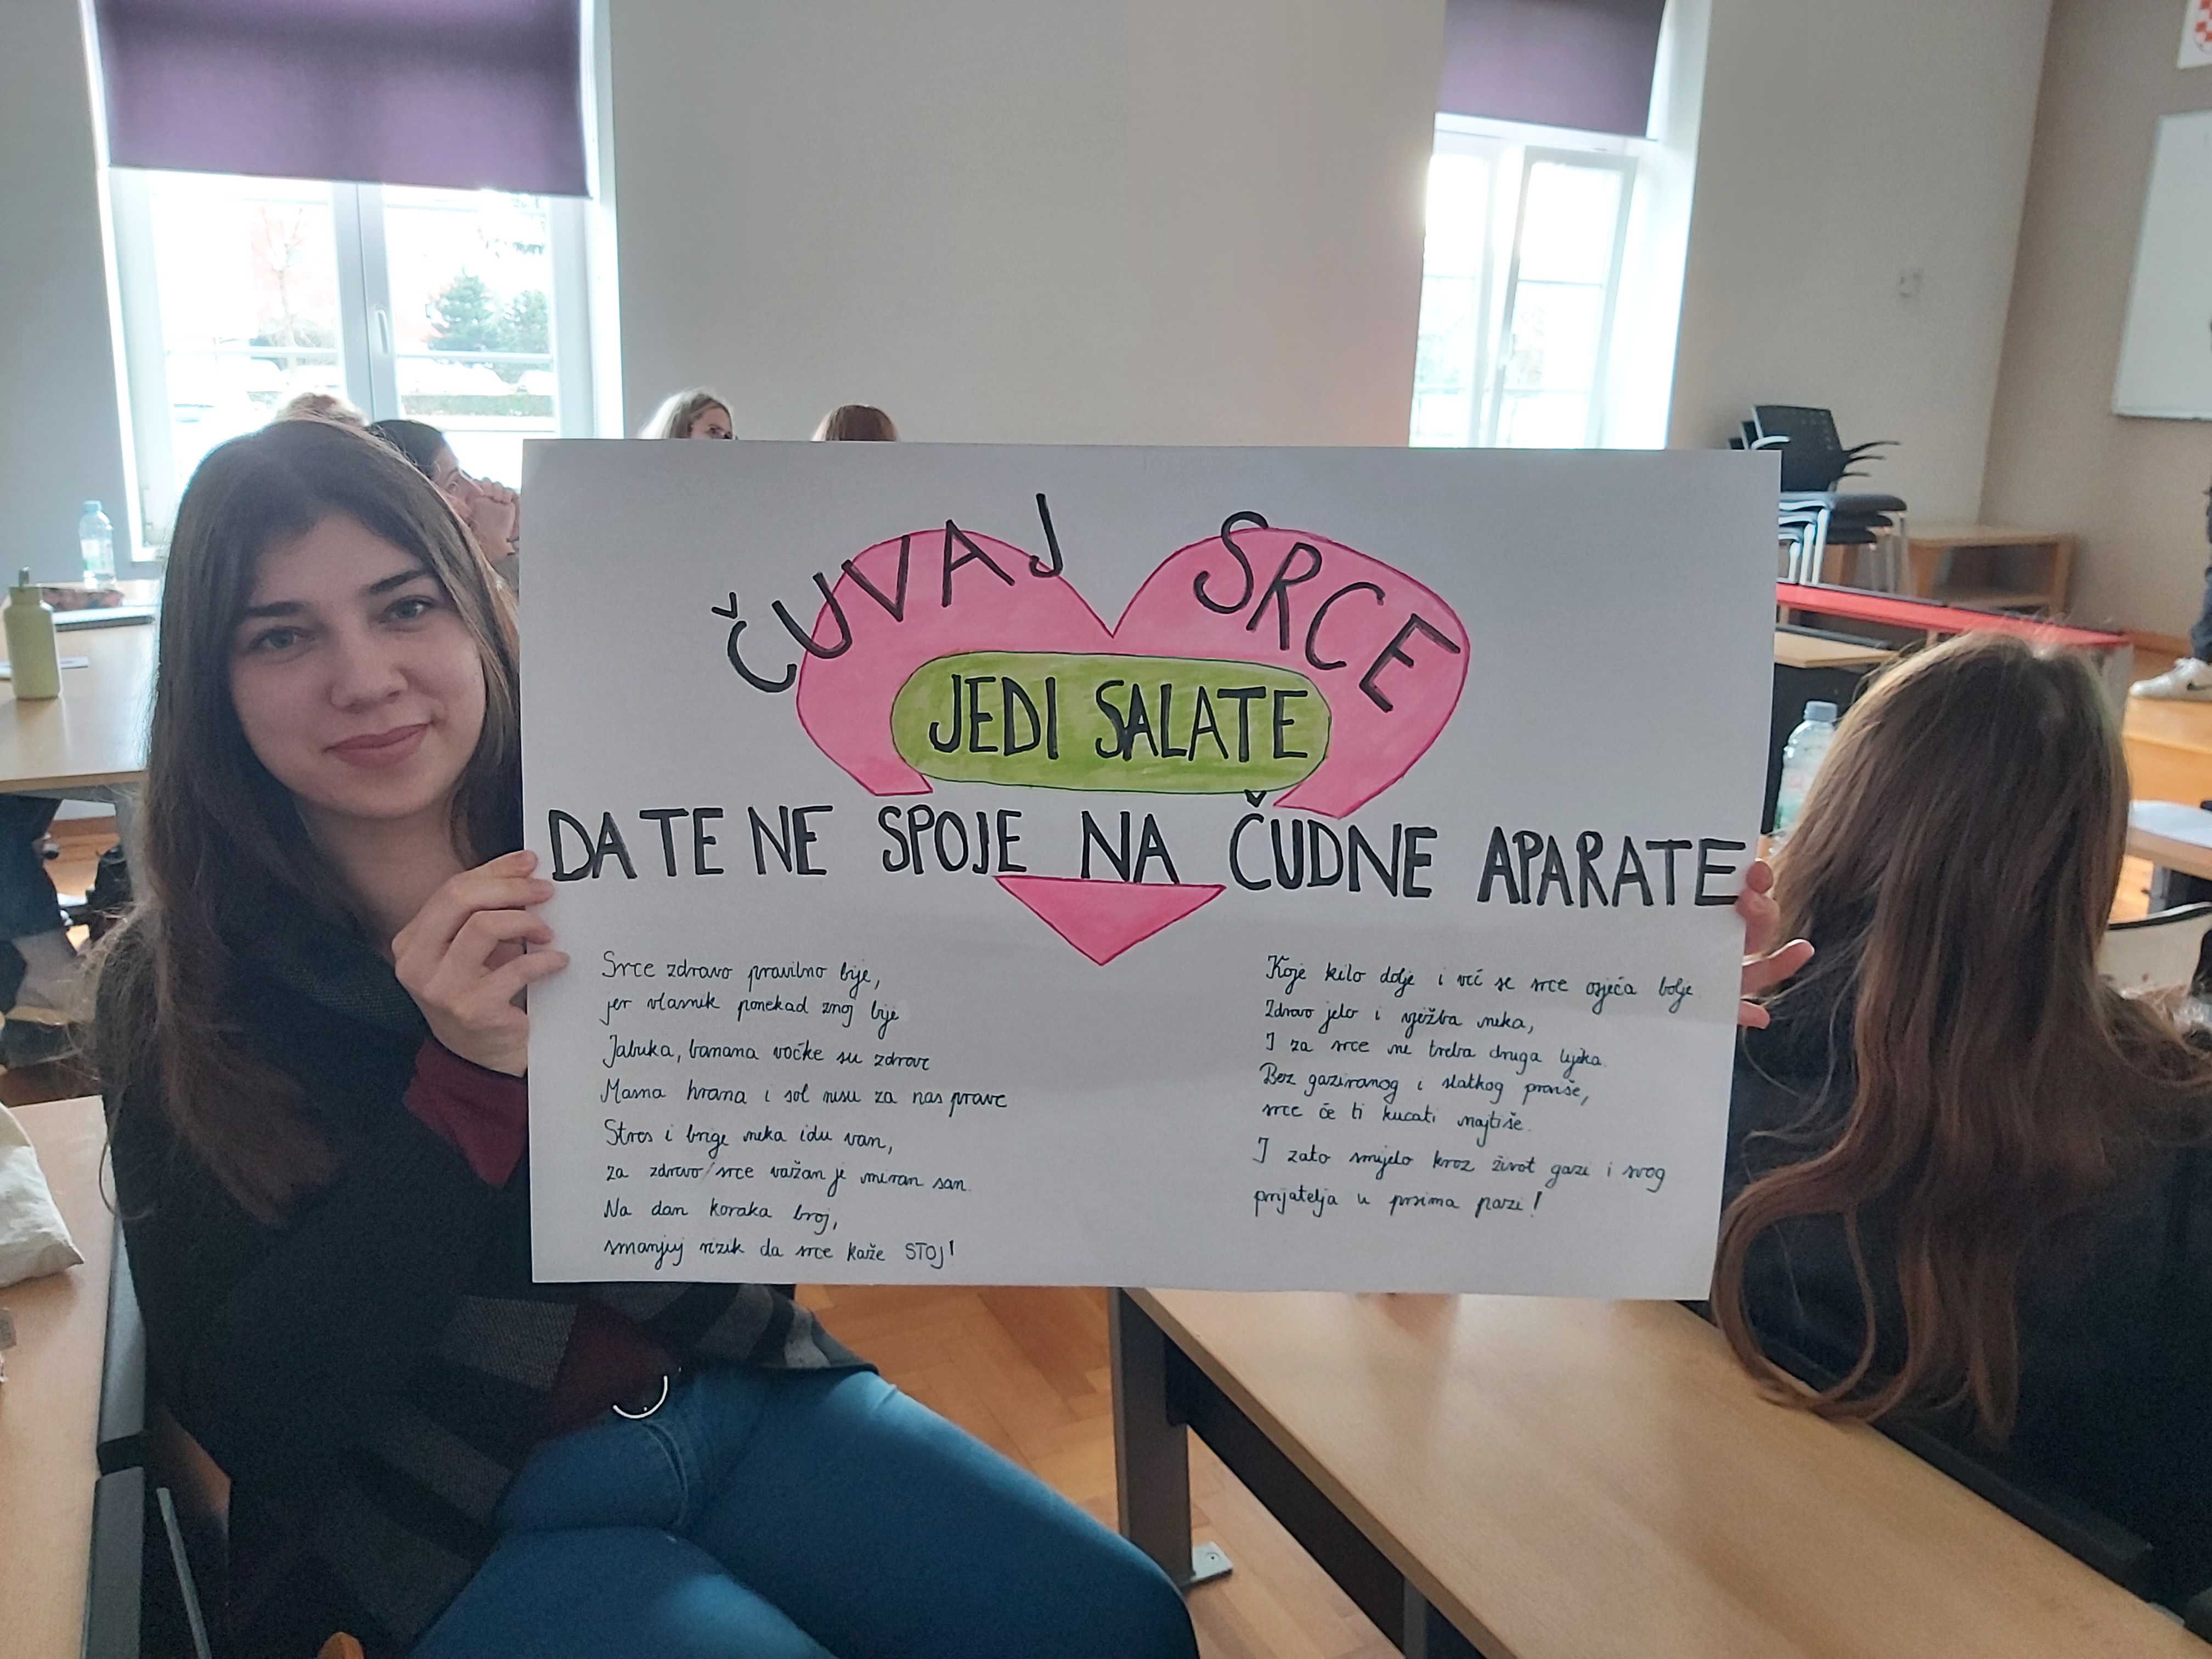 ČUVAJ SRCE
JEDI SALATE
DA TE NE SPOJE NA ČUDNE APARATE
Srce zdravo pravilno bije,
jer vlasnik ponekad znoj lije
Jabuka, banana voćke su zdrave
Masna hrana i sol nisu za nas prave
Stres i brige neka idu van,
za zdravo srce važan je miran san.
Na dan koraka broj,
smanjuj rizik da srce kaže STOJ!
Koje kilo dolje i već se srce osjeća bolje.
Zdravo jelo i vježba neka,
I za srce ne treba druga lijeka.
Bez gaziranog i slatkog previše,
srce će ti kucati najtiše.
I zato smijelo kroz život gazi i svog
prijatelja u prsima pazi!